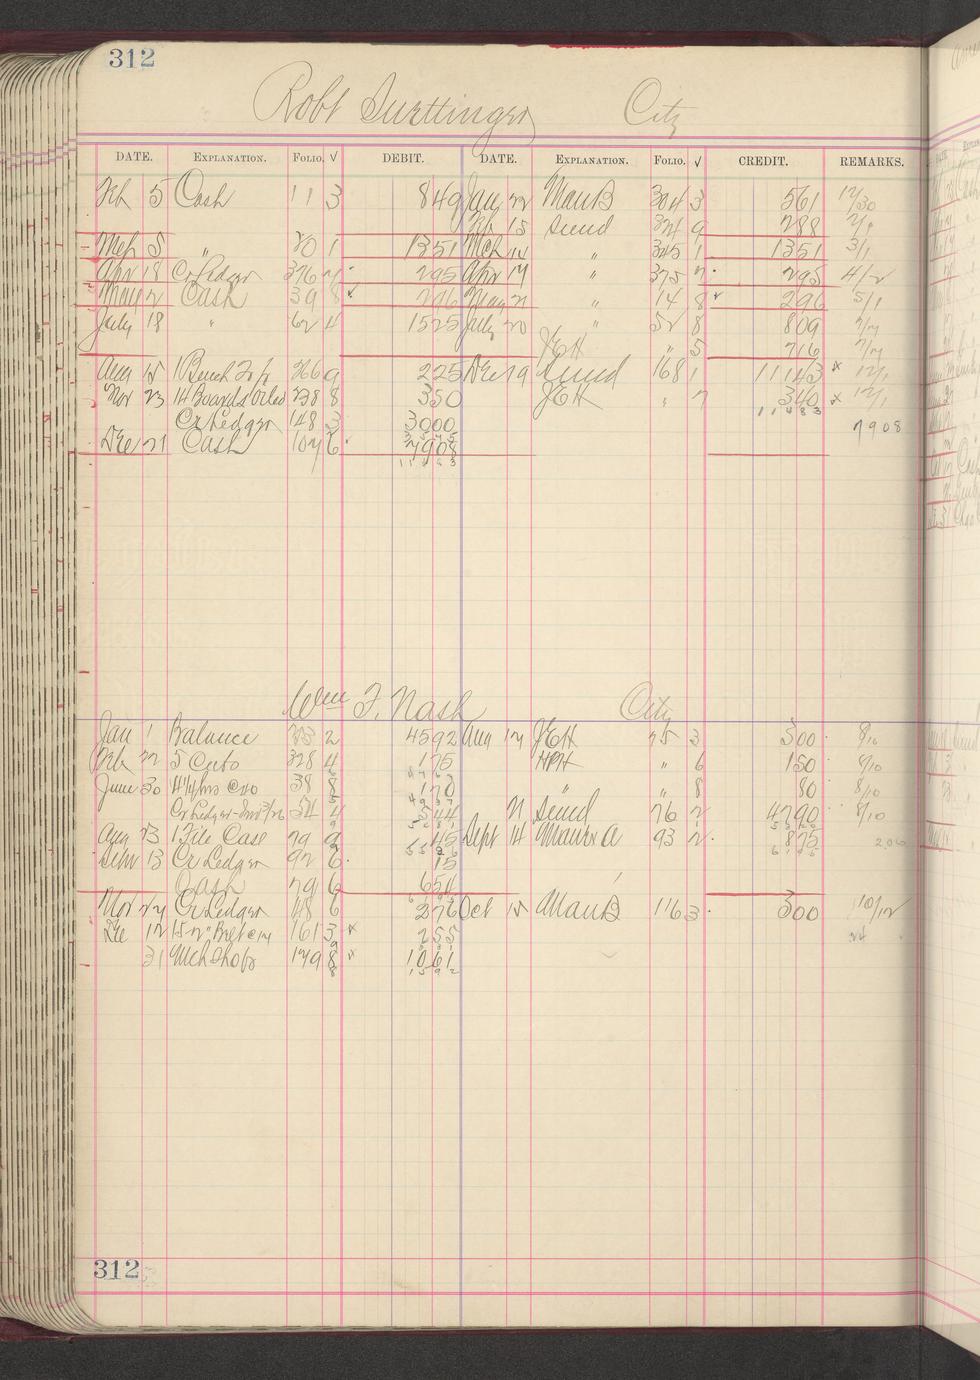 312
Robt Suettinger City
DATE. EXPLANATION. FOLIO. √ DEBIT. DATE. EXPLANATION. FOLIO. √ CREDIT. REMARKS.
Feb 5 Cash 11 3 849 Jan 22 ManB 304 3 561 12/30
Feb 15 Sund 324 9 288 2/1
Mch 5 " 20 1 1351 Mch 14 " 345 1 1351 3/1
Apr 18 Cr Ledger 376 7 295 Apr 17 " 375 7 295 4/2
May 2 Cash 39 8 296 May 21 " 14 8 296 5/1
July 18 " 62 4 1525 July 20 " 52 8 809 7/7
JEH " 5 716 7/7
Aug 15 1 Bench Top 366 9 225 Dec 19 Sund 168 1 11143 x 12/1
Nov 23 14 Boards Oiled 238 8 350 JEH " 7 340 x 12/1
11483
Cr Ledger 148 3 3000 7908
Dec 21 Cash 107 6 7908
11483
Wm F. Nash City
Jan 1 Balance 2 4592 Aug 17 JEH 75 3 500 8/10
Feb 22 5 Cuto 328 4 175 HPH " 6 150 8/10
June 30 4¼ hrs @40 38 8 170 " " 8 80 8/10
Cr Ledger 54 4 544 21 Sund 76 2 4790 8/10
Aug 23 1 File Case 79 9 45 Sept 14 Manux a 93 2 875
Sept 13 Cr Ledger 92 6 15
Cash 79 6 654
Nov 27 Cr Ledger 148 6 276 Oct 15 ManB 116 3 300 10/12
Dec 12 15 ft 2" Belt @17 161 3 x 255
31 Mch Shop 179 8 x 1061
1592
312